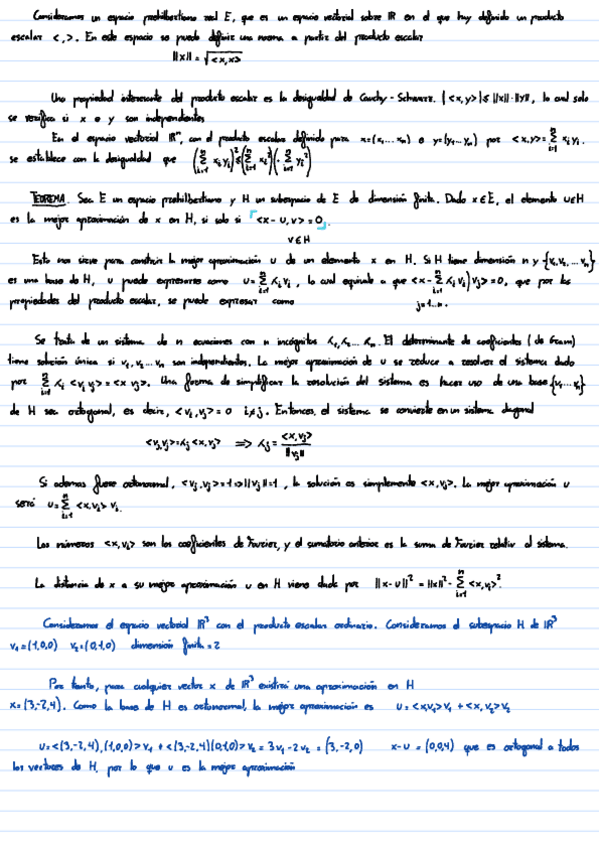 Consideramos un espacio prehilbertiano real E, que es un espacio vectorial sobre ℝ en el que hay definido un producto
escalar < , >. En este espacio se puede definir una norma a partir del producto escalar
||x|| = √<x,x>
Una propiedad interesante del producto escalar es la desigualdad de Cauchy - Schwarz. |<x,y>| ≤ ||x||·||y||, lo cual solo
se verifica si x e y son independientes
En el espacio vectorial ℝⁿ, con el producto escalar definido para x=(x₁...xₙ) e y=(y₁...yₙ) por <x,y> = Σⁿᵢ₌₁ xᵢyᵢ.
se establece con la desigualdad que (Σⁿᵢ₌₁ xᵢyᵢ)² ≤ (Σⁿᵢ₌₁ xᵢ²)·(Σⁿᵢ₌₁ yᵢ²)
TEOREMA. Sea E un espacio prehilbertiano y H un subespacio de E de dimensión finita. Dado x∈E, el elemento u∈H
es la mejor aproximación de x en H, si solo si <x-u,v> = 0.
v∈H
Esto nos sirve para construir la mejor aproximación u de un elemento x en H. Si H tiene dimensión n y {v₁,v₂,...vₙ}
es una base de H, u puede expresarse como u = Σⁿᵢ₌₁ λᵢvᵢ, lo cual equivale a que <x - Σⁿᵢ₌₁ λᵢvᵢ, vⱼ> = 0, que por las
propiedades del producto escalar, se puede expresar como j=1...n.
Se trata de un sistema de n ecuaciones con n incógnitas λ₁,λ₂...λₙ. El determinante de coeficientes (de Gram)
tiene solución única si v₁,v₂...vₙ son independientes. La mejor aproximación de u se reduce a resolver el sistema dado
por Σⁿᵢ₌₁ λᵢ <vᵢ,vⱼ> = <x,vⱼ>. Una forma de simplificar la resolución del sistema es hacer uso de una base {v₁...vₙ}
de H sea ortogonal, es decir, <vᵢ,vⱼ> = 0 i≠j. Entonces, el sistema se convierte en un sistema diagonal
<vⱼ,vⱼ>=λⱼ<x,vⱼ> ⇒ λⱼ = <x,vⱼ>/||vⱼ||
Si ademas fuese ortonormal, <vⱼ,vⱼ>=1⇒||vⱼ||=1, la solución es simplemente <x,vⱼ>. La mejor aproximación u
será u = Σⁿᵢ₌₁ <x,vᵢ> vᵢ.
Los números <x,vᵢ> son los coeficientes de Fourier, y el sumatorio anterior es la suma de Fourier relativa al sistema.
La distancia de x a su mejor aproximación u en H viene dada por ||x-u||² = ||x||² - Σⁿᵢ₌₁ <x,vᵢ>².
Consideramos el espacio vectorial ℝ³ con el producto escalar ordinario. Consideramos el subespacio H de ℝ³
v₁=(1,0,0) v₂=(0,1,0) dimensión finita=2
Por tanto, para cualquier vector x de ℝ³ existirá una aproximación en H
x=(3,-2,4). Como la base de H es ortonormal, la mejor aproximación es u=<x,v₁>v₁ + <x,v₂>v₂
u=<(3,-2,4),(1,0,0)>v₁ + <(3,-2,4)(0,1,0)>v₂ = 3v₁-2v₂ = (3,-2,0) x-u = (0,0,4) que es ortogonal a todos
los vectores de H, por lo que u es la mejor aproximación